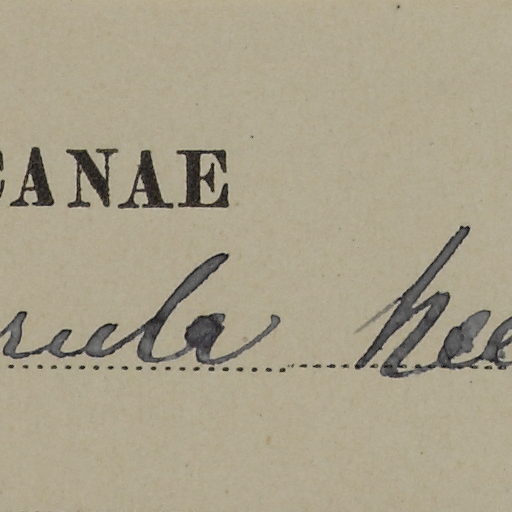 CANAE
rula Nee